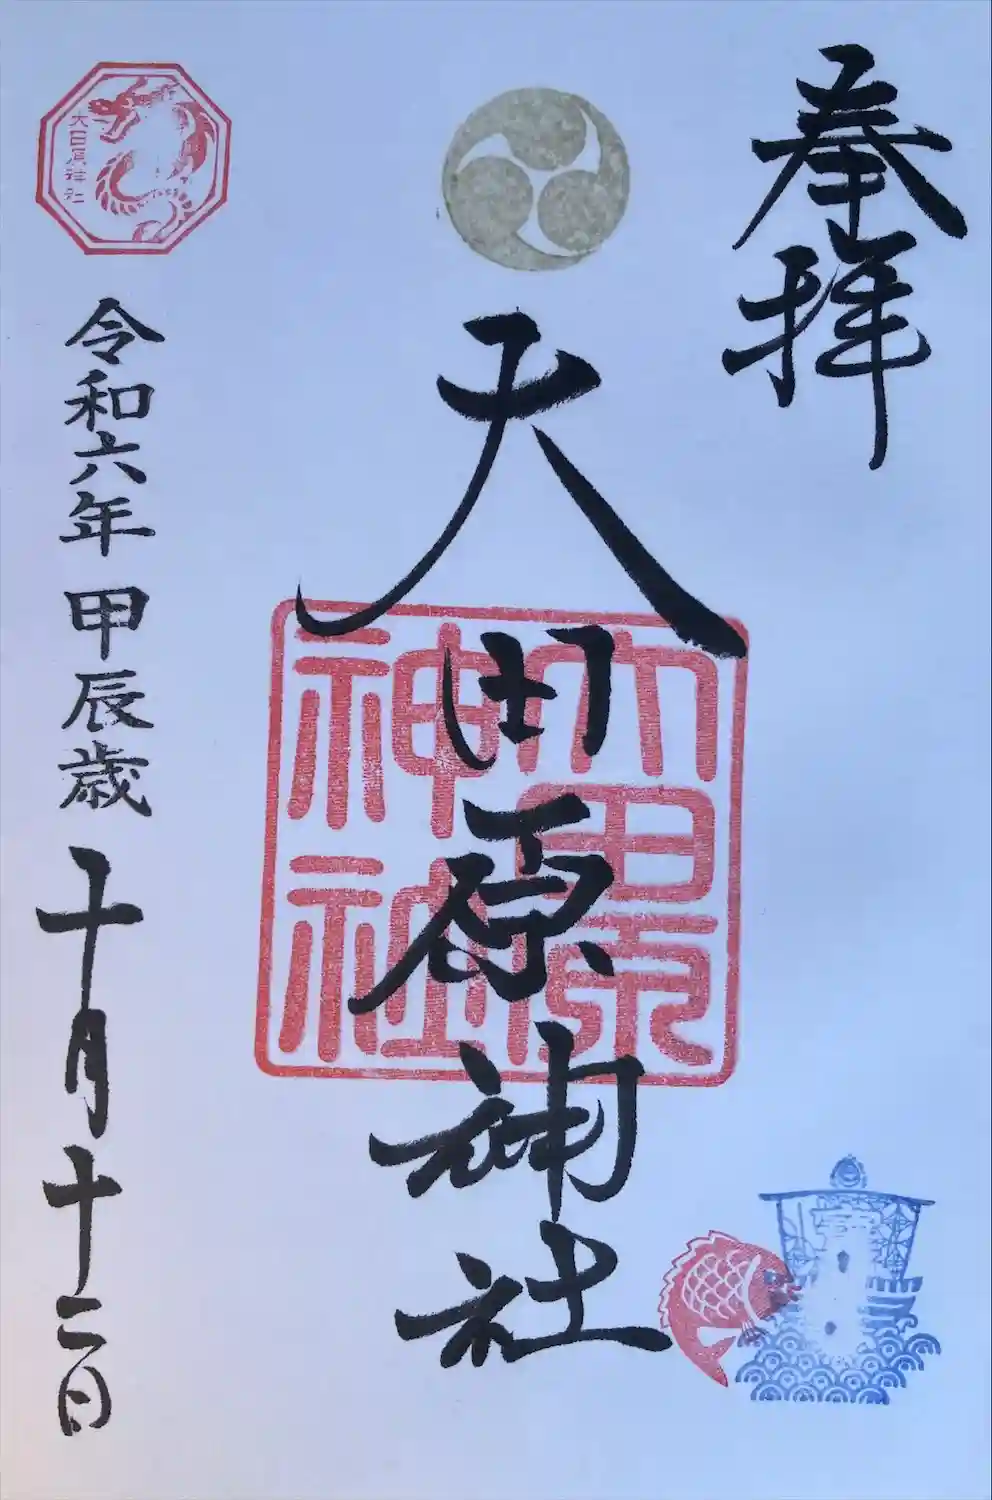 奉拝
大田原神社
大田原
神社
大田原神社
令和六年 甲辰歳 十月十二日